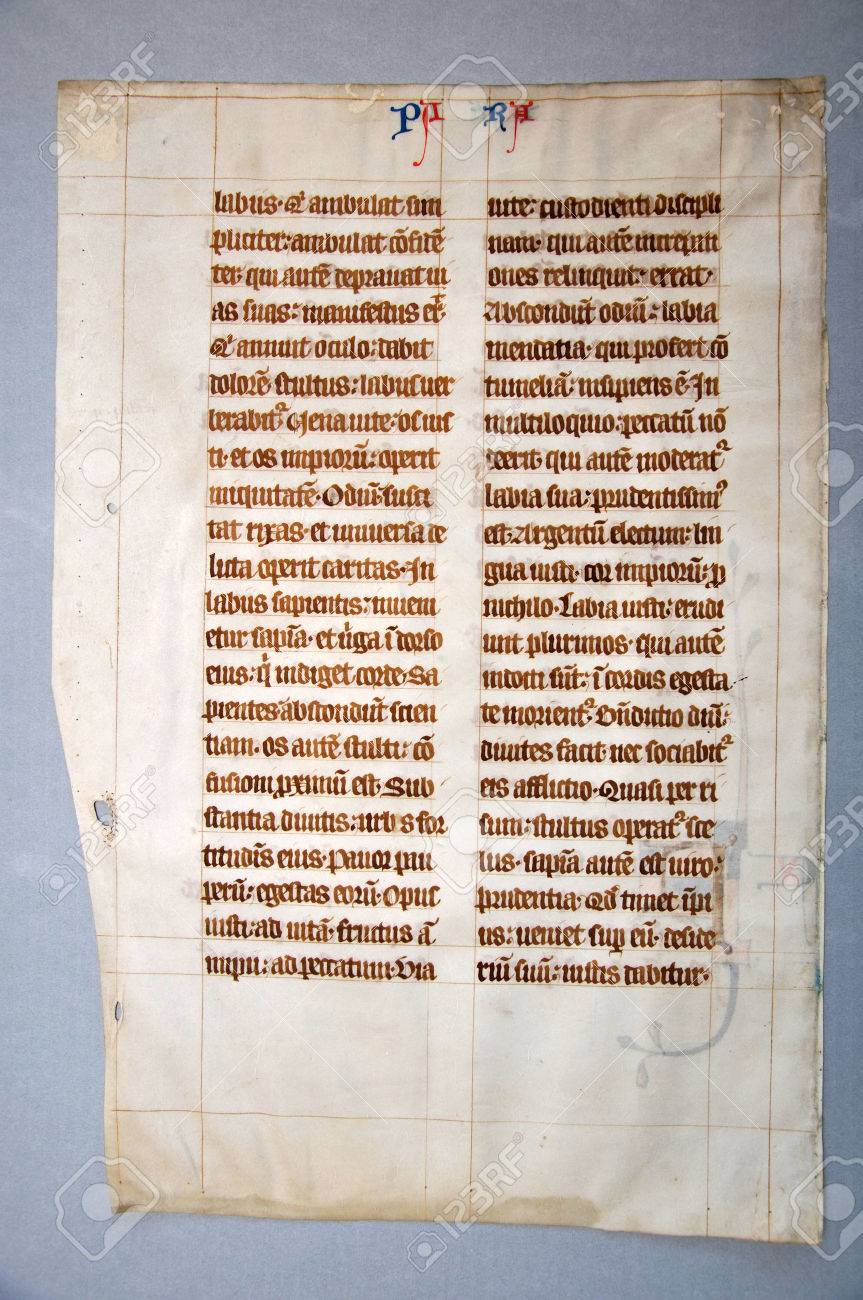 PA RA
labiis· Qi ambulat sim
pliciter: ambulat cōfidē
ter· qui autē deprauat ui
as suas: manifestus erit·
Qi annuit oculo: dabit
dolorē· stultus: labiis uer
berabit᷑· Uena uite: os ius
ti· et os impiorū: operit
iniquitatē· Odiū: susci
tat rixas· et uniuersa de
licta operit caritas· In
labiis sapientis: inueni
etur sapīa· et uirga ī dorso
eius: qi indiget corde· Sa
pientes abscondūt scien
tiam· os autē stulti: cō
fusioni proximū est· Sub
stantia diuitis: urbs for
titudinis eius· Pauor pau
perū: egestas eorū· Opus
iusti: ad uitā· fructus aū
impii: ad peccatum· Via
uite: custodienti discipli
nam· qui autē increpati
ones relinquit: errat·
Abscondūt odiū: labia
mendatia· qui profert cō
tumeliā: insipiens ē· In
multiloquio: peccatū nō
deerit· qui autē moderat᷑
labia sua: prudentissimꝰ
est· Argentū electum: lin
gua iusti· cor impiorū: pro
nichilo· Labia iusti: erudi
unt plurimos· qui autē
indocti sūt: ī cordis egesta
te morient᷑· Bn̄dictio dn̄i:
diuites facit· nec sociabit᷑
eis afflictio· Quasi per ri
sum: stultus operat᷑ sce
lus· sapīa autē est uiro:
prudentia· Qd̄ timet īpi
us: ueniet sup eū· deside
riū suū: iustis dabitur·
123RF